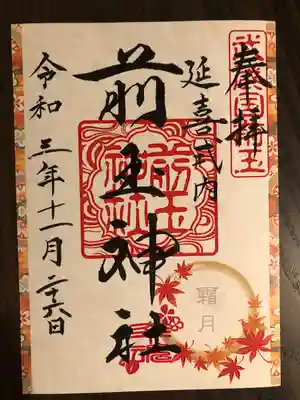 奉拝
武蔵国埼玉
延喜式内
前玉神社
前玉神社
霜月
令和三年十一月二六日